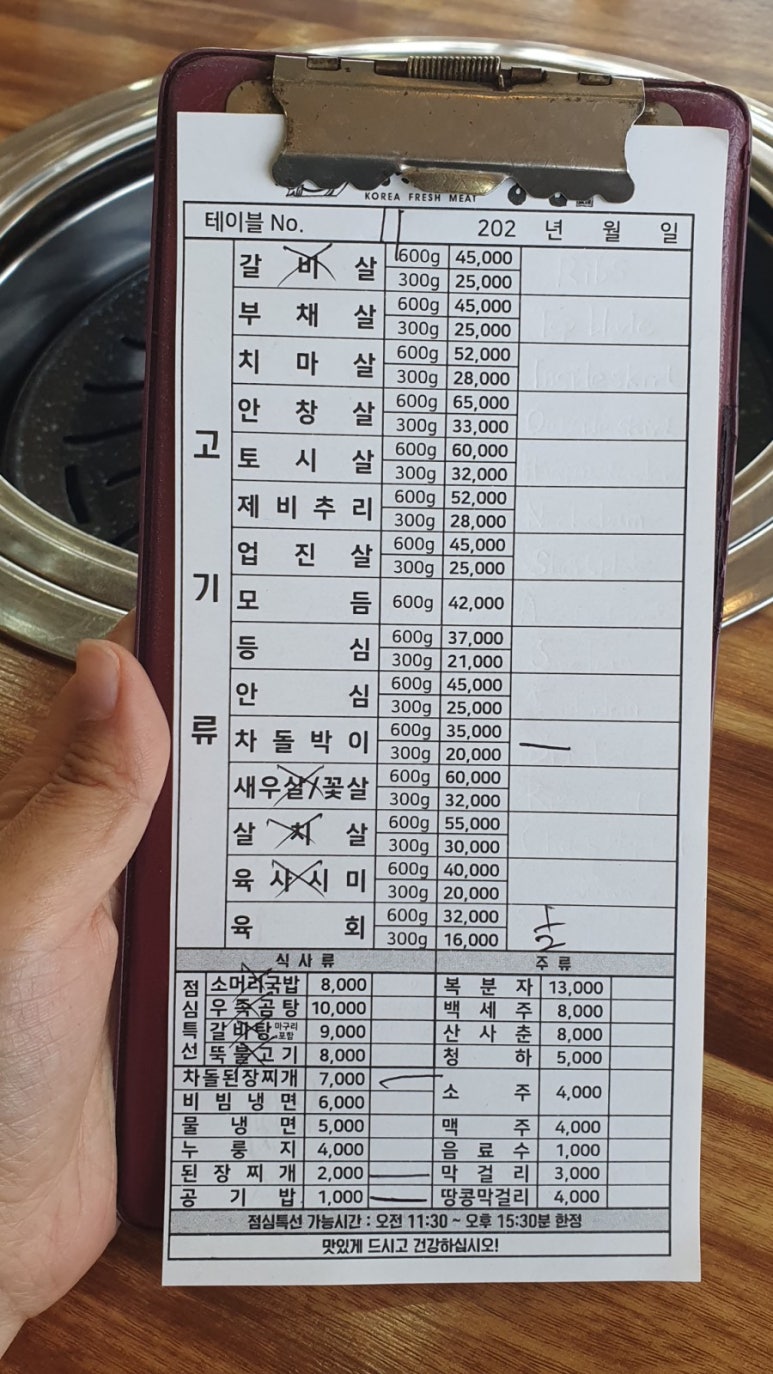 KOREA FRESH MEAT
테이블 No. 202 년 월 일
고기류
갈비살 600g 45,000
300g 25,000
부채살 600g 45,000
300g 25,000
치마살 600g 52,000
300g 28,000
안창살 600g 65,000
300g 33,000
토시살 600g 60,000
300g 32,000
제비추리 600g 52,000
300g 28,000
업진살 600g 45,000
300g 25,000
모듬 600g 42,000
등심 600g 37,000
300g 21,000
안심 600g 45,000
300g 25,000
차돌박이 600g 35,000
300g 20,000
새우살/꽃살 600g 60,000
300g 32,000
살치살 600g 55,000
300g 30,000
육사시미 600g 40,000
300g 20,000
육회 600g 32,000
300g 16,000 1/2
식사류 주류
점심특선
소머리국밥 8,000 복분자 13,000
우족곰탕 10,000 백세주 8,000
갈비탕 마구리포함 9,000 산사춘 8,000
뚝불고기 8,000 청하 5,000
차돌된장찌개 7,000 소주 4,000
비빔냉면 6,000
물냉면 5,000 맥주 4,000
누룽지 4,000 음료수 1,000
된장찌개 2,000 막걸리 3,000
공기밥 1,000 땅콩막걸리 4,000
점심특선 가능시간 : 오전 11:30 ~ 오후 15:30분 한정
맛있게 드시고 건강하십시오!